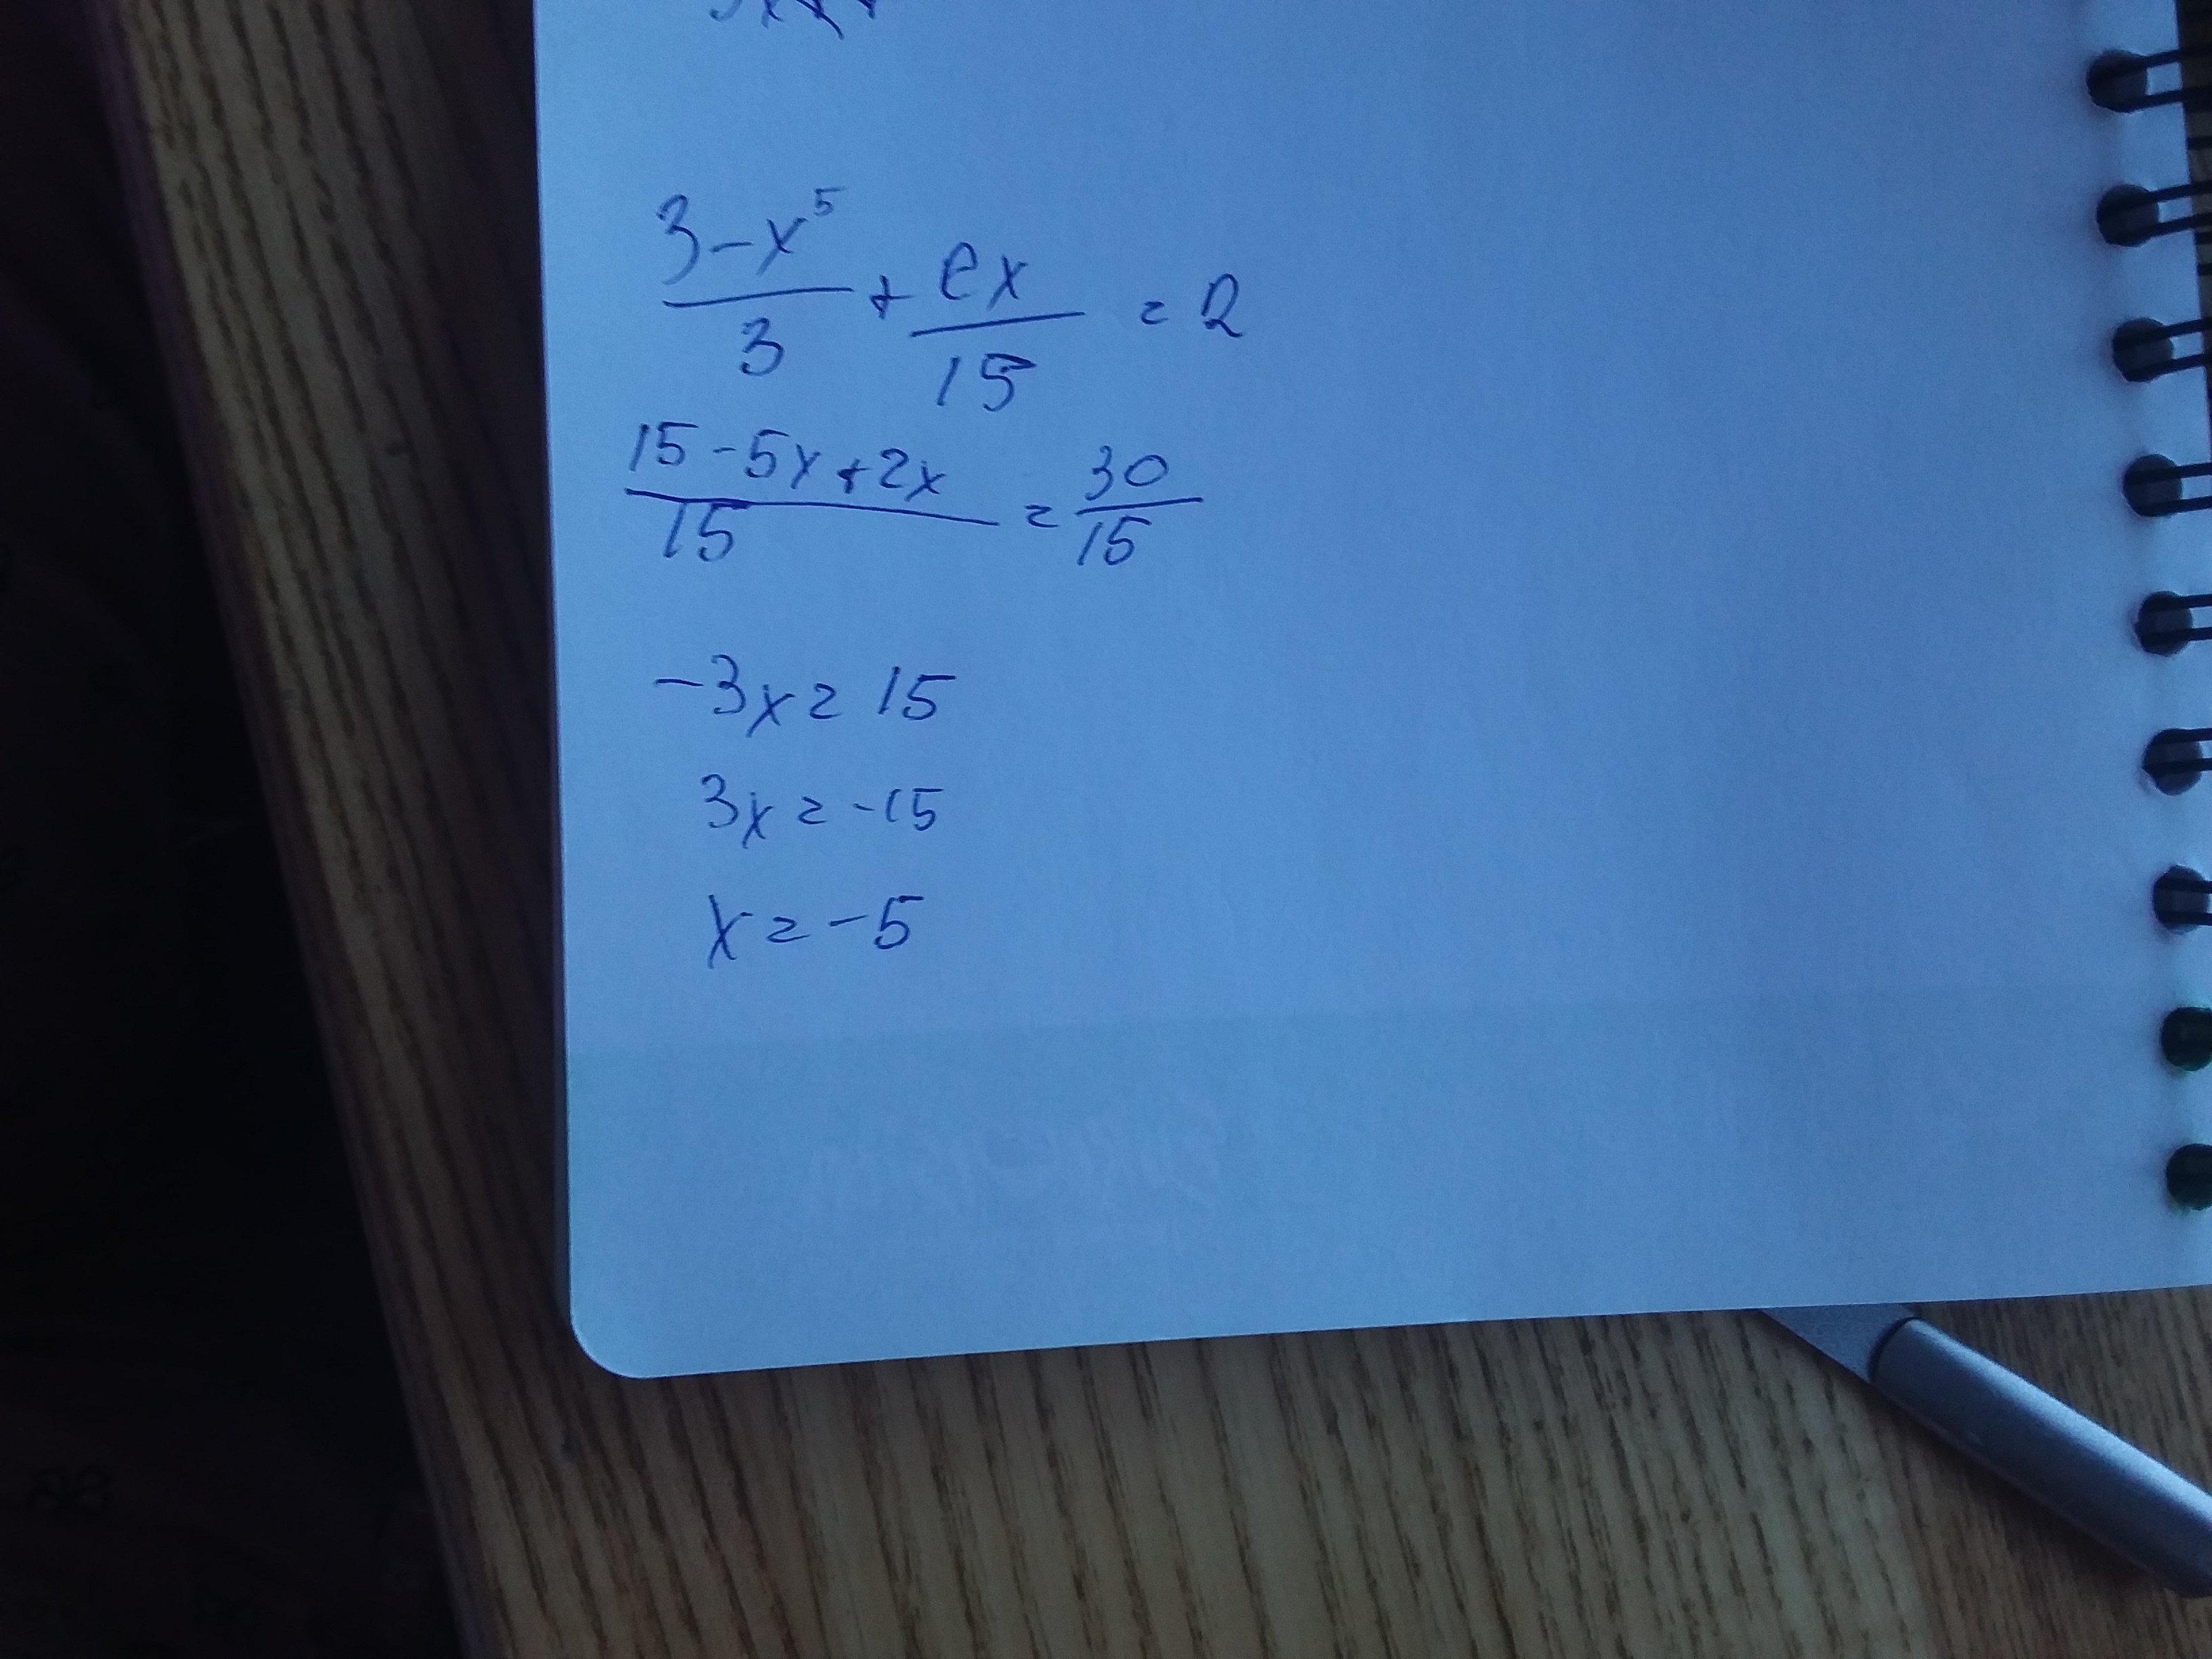 3-x⁵/3 + ex/15 = 2
15-5x+2x/15 = 30/15
-3x = 15
3x = -15
x = -5